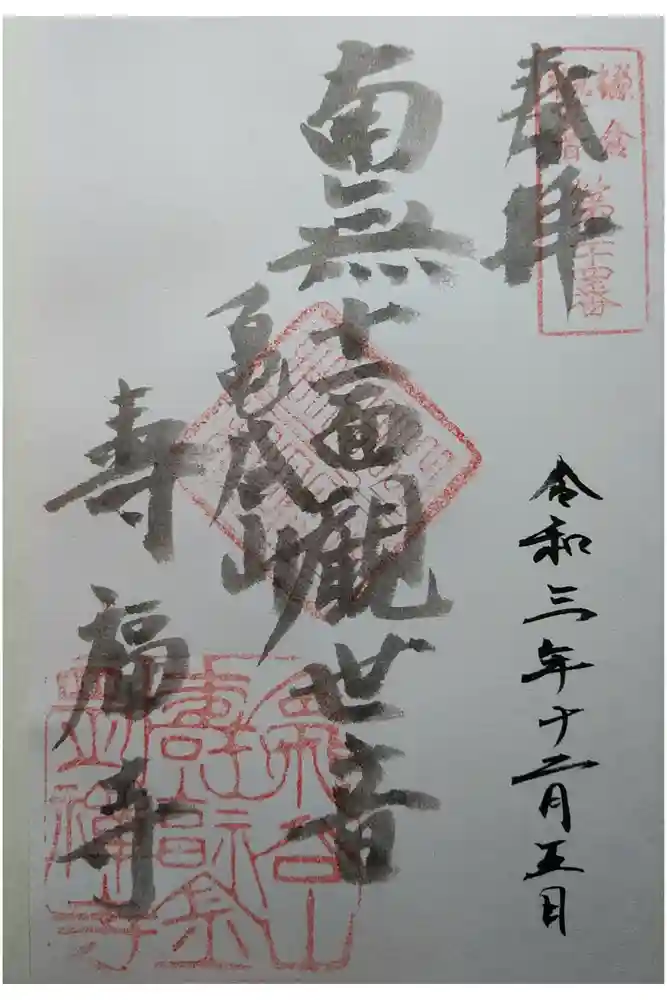 奉拝
鎌倉
観音
令和三年十二月五日
南無十一面観世音
亀谷山
寿福寺